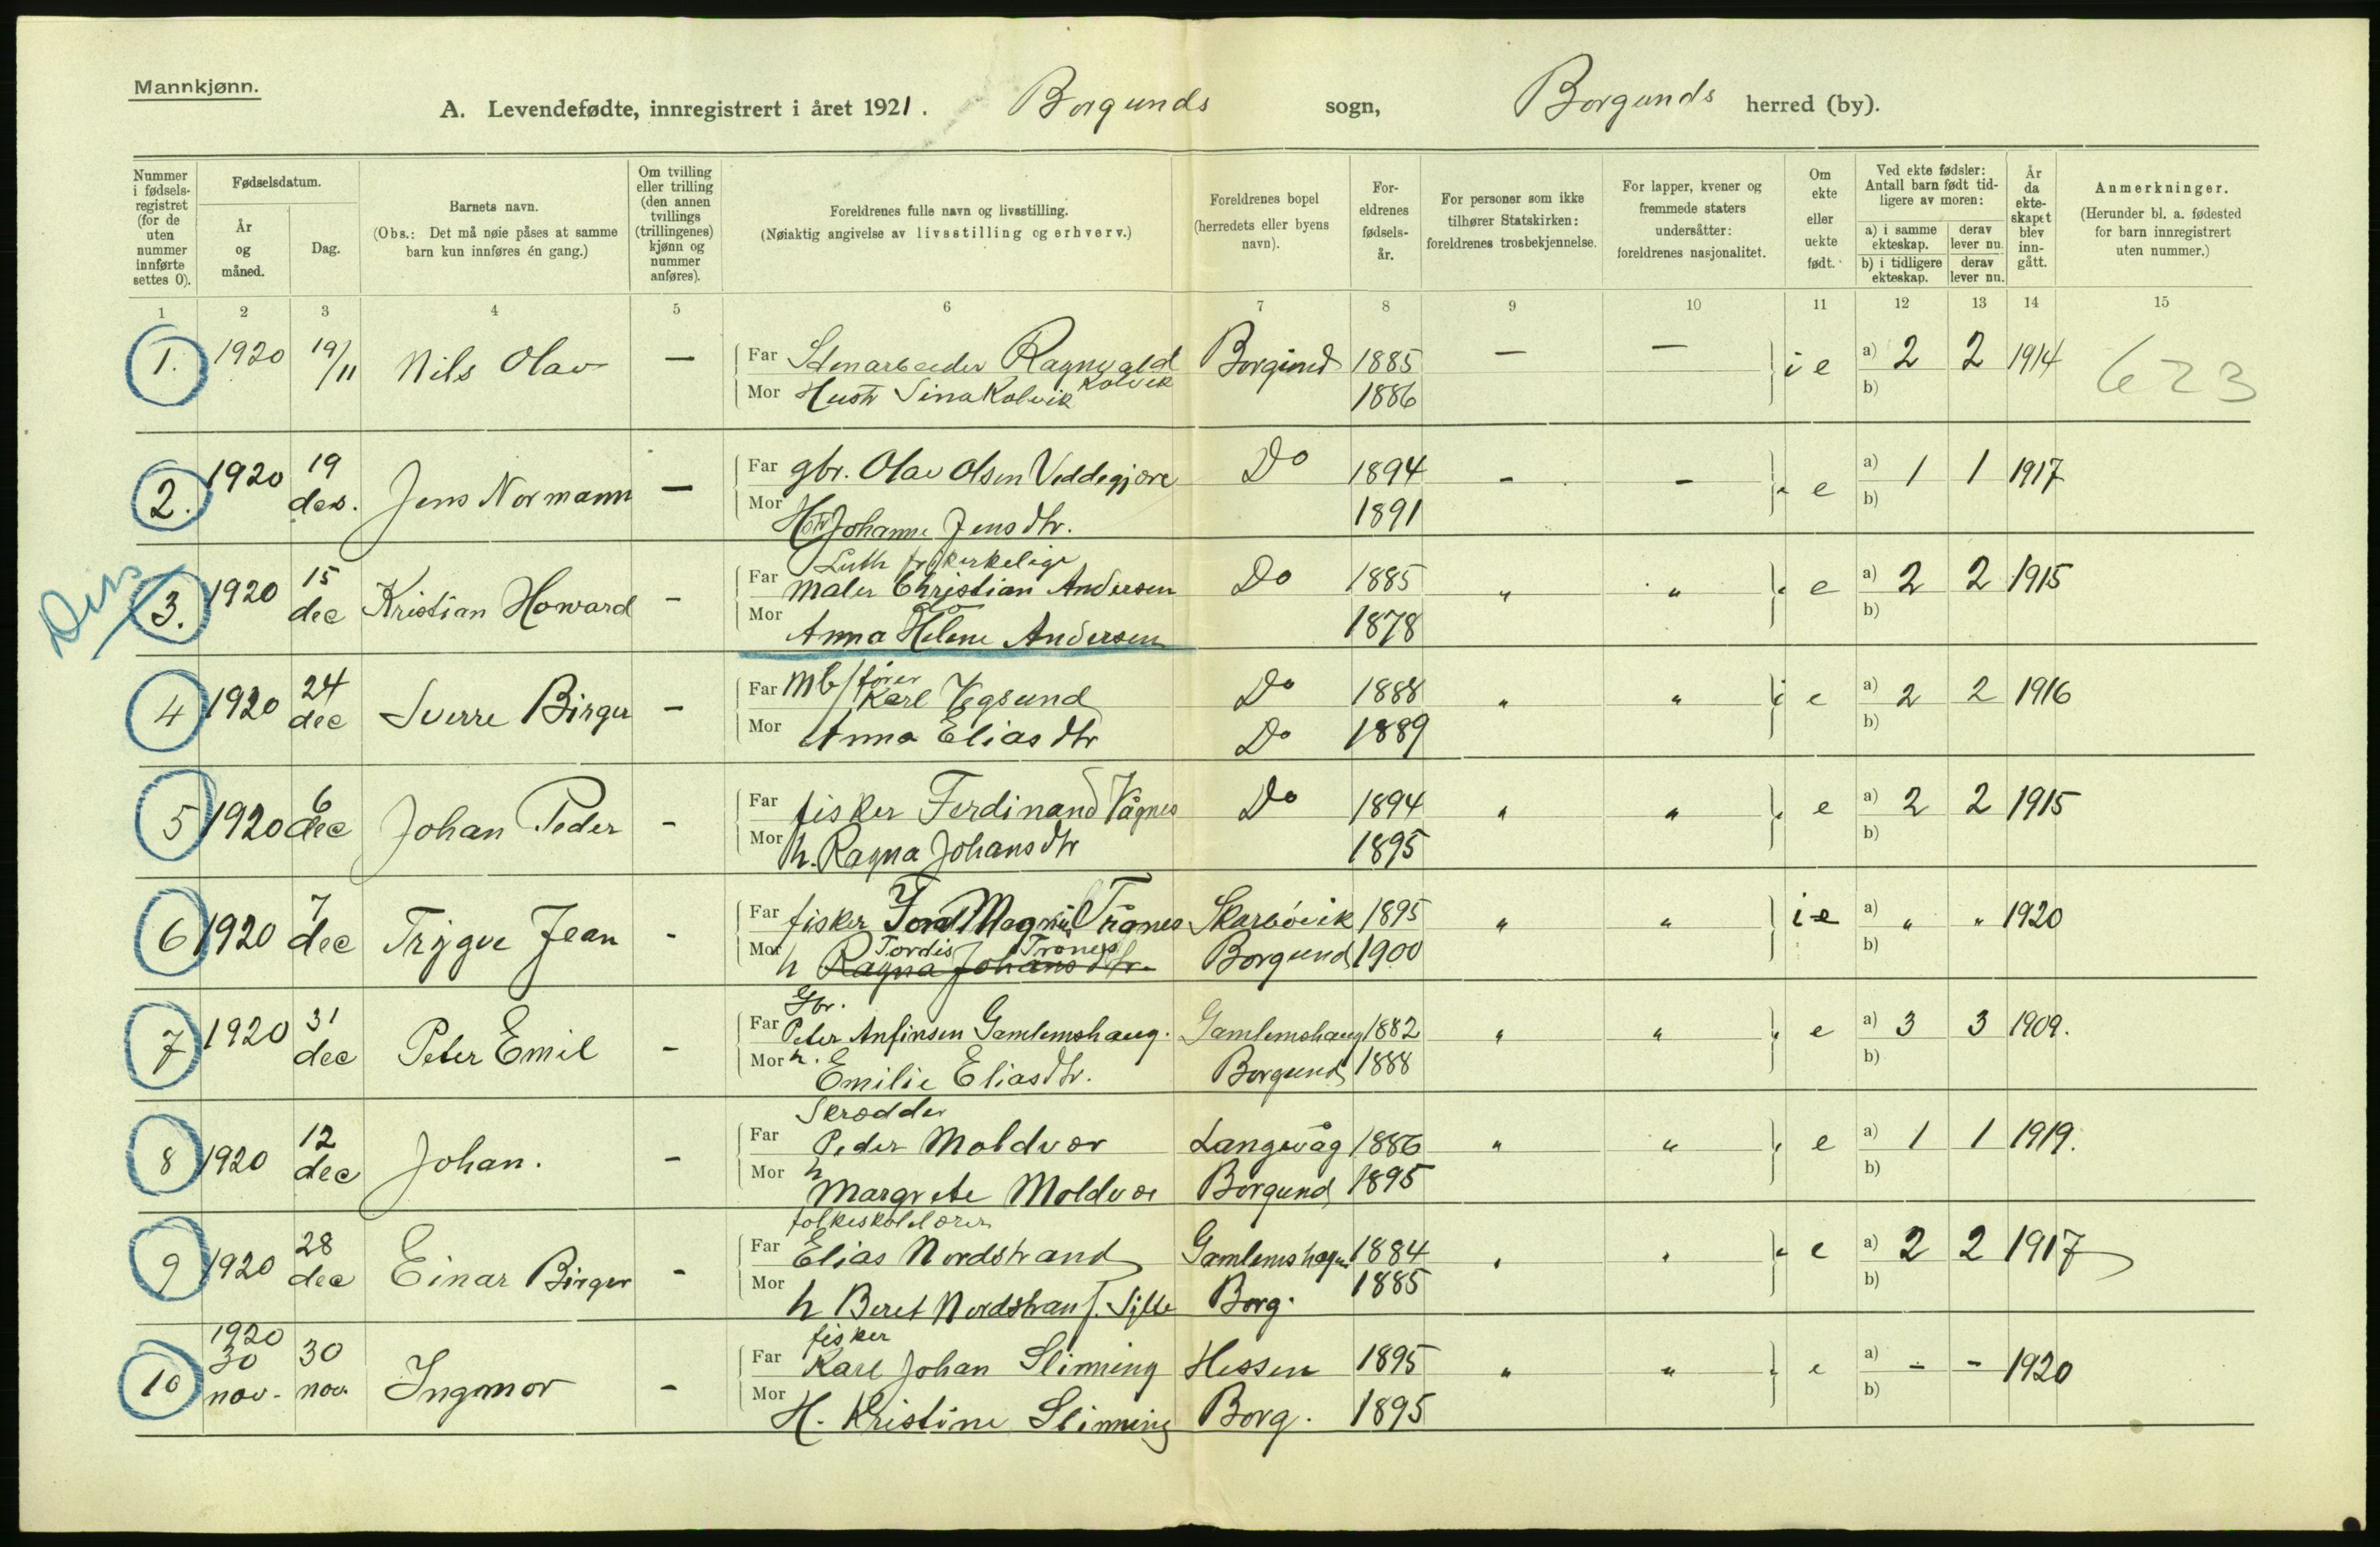 Mannkjønn.
A. Levendefødte, innregistrert i året 1921. Borgunds sogn, Borgunds herred (by).
Nummer i fødselsregistret (for de uten nummer innførte settes 0).
Fødselsdatum.
År og måned.
Dag.
Barnets navn.
(Obs.: Det må nøie påses at samme barn kun innføres én gang.)
Om tvilling eller trilling (den annen tvillings (trillingenes) kjønn og nummer anføres).
Foreldrenes fulle navn og livsstilling.
(Nøiaktig angivelse av livsstilling og erhverv.)
Foreldrenes bopel (herredets eller byens navn).
Foreldrenes fødselsår.
For personer som ikke tilhører Statskirken: foreldrenes trosbekjennelse.
For lapper, kvener og fremmede staters undersåtter: foreldrenes nasjonalitet.
Om ekte eller uekte født.
Ved ekte fødsler: Antall barn født tidligere av moren:
a) i samme ekteskap. derav lever nu.
b) i tidligere ekteskap. derav lever nu.
År da ekteskapet blev inngått.
Anmerkninger.
(Herunder bl. a. fødested for barn innregistrert uten nummer.)
1 2 3 4 5 6 7 8 9 10 11 12 13 14 15
1. 1920 19/11 Nils Olav — Far Ragnvald Kolvik Borgund 1885 — — e a) 2 2 1914 623
Mor Hustr Sina Kolvik 1886 b)
2. 1920 19 des. Jens Normann — Far gbr. Olav Olsen Veddegjære Do 1894 - - e a) 1 1 1917
Mor Johanne Jensdtr. 1891 b)
Luth frikirkelige
3. 1920 15 dec Kristian Howard - Far Maler Christian Andersen Do 1885 " " e a) 2 2 1915
Mor Anna Helene Andersen 1878 b)
4 1920 24 dec Sverre Birger - Far Mb/fører Karl Vegsund Do 1888 " " e a) 2 2 1916
Mor Anna Eliasdtr Do 1889 b)
5 1920 6 dec Johan Peder - Far fisker Ferdinand Vågnes Do 1894 " " e a) 2 2 1915
Mor h. Ragna Johansdtr 1895 b)
6 1920 7 dec Trygve Jean - Far fisker Magnus Tranes Skarbövik 1895 " " e a) " " 1920
Mor h Tordis Tranes Ragna Johansdtr. Borgund 1900 b)
Gbr.
7 1920 31 dec Peter Emil - Far Peter Anfinsen Gamlemshaug. Gamlemshaug 1882 " " e a) 3 3 1909.
Mor h. Emilie Eliasdtr. Borgund 1888 b)
Skrædder
8 1920 12 dec Johan. - Far Peder Moldvær Langevåg 1886 " " e a) 1 1 1919.
Mor h Margrete Moldvær Borgund 1895 b)
folkeskolelærer
9 1920 28 dec Einar Birger - Far Elias Nordstrand 1884 e a) 2 2 1917
Mor h Beret Nordstran Borg. 1885 b)
fisker
10 1920 30 nov. 30 nov. Ingmar - Far Karl Johan Slinning Hessen 1895 " " e a) - - 1920
Mor H. Kristine Slinning Borg. 1895 b)